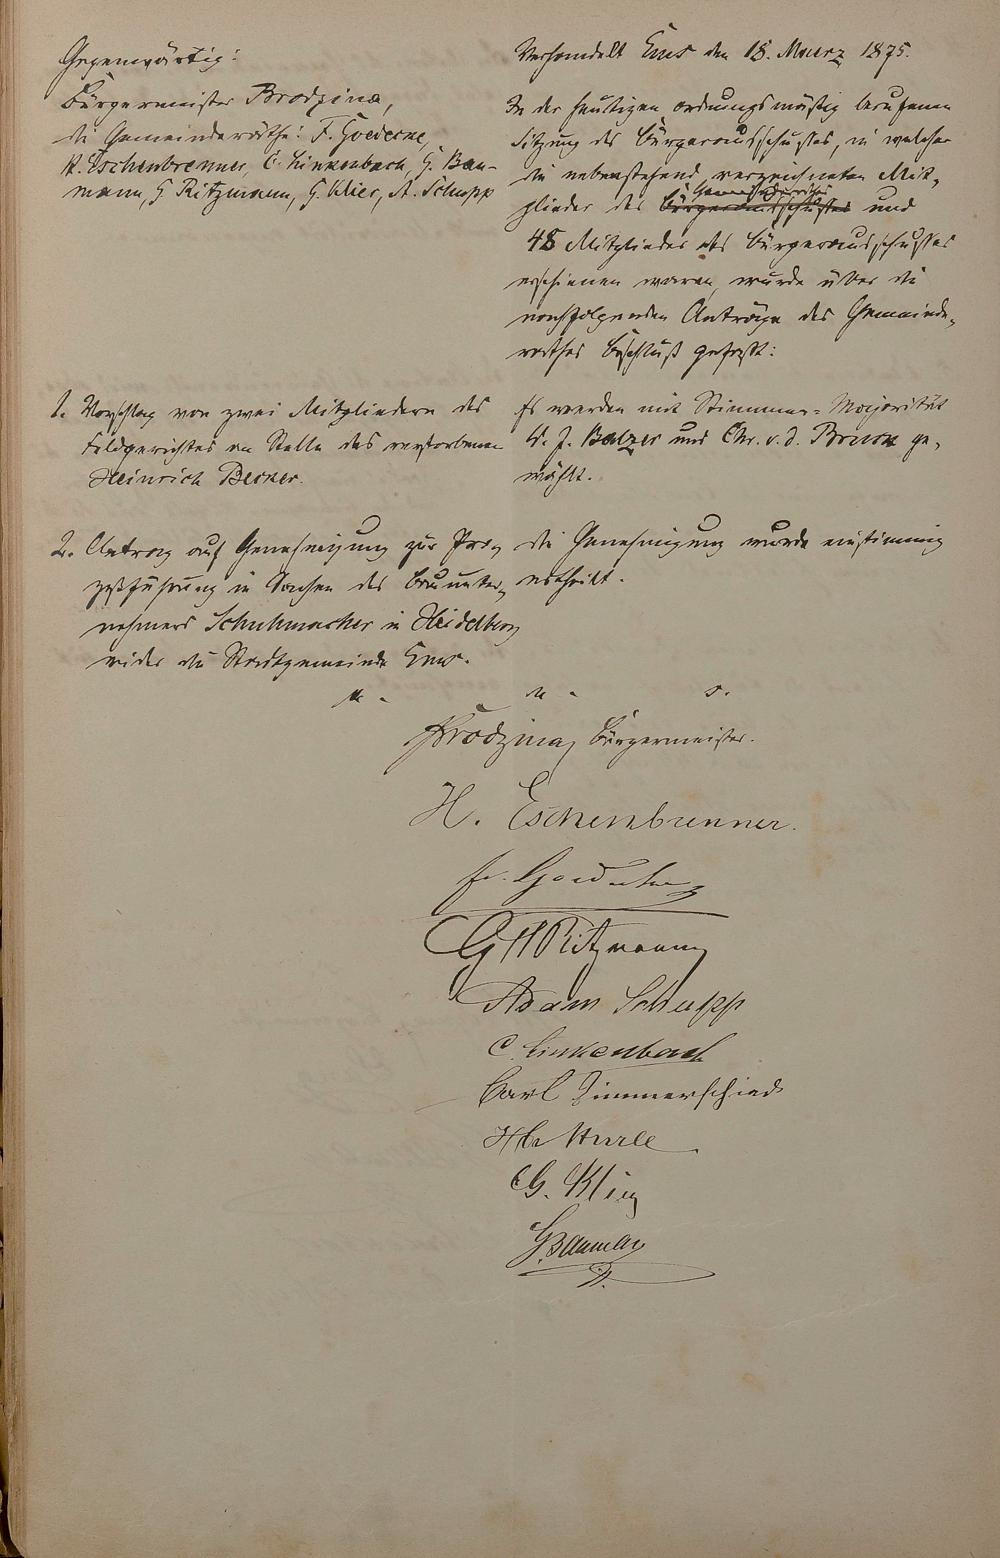 Gegenwärtig:
Bürgermeister Brodzina,
die Gemeinderäthe: F. Goedecke,
H. Eschenbrenner, C. Linkenbach, G. Bau-
mann, G. Ritzmann, G. Klier, A. Schupp
Verhandelt Ems den 18. Maerz 1875.
In der heutigen ordnungsmäßig berufenen
Sitzung des Bürgerausschusses, in welcher
die nebenstehend verzeichneten Mit-
Gemeinderathes
glieder des Bürgerausschusses und
48 Mitglieder des Bürgerausschusses
erschienen waren, wurde über die
nachfolgenden Anträge des Gemeinde-
rathes Beschluß gefaßt:
1. Vorschlag von zwei Mitgliedern des
Feldgerichtes an Stelle des verstorbenen
Heinrich Becker.
Es werden mit Stimmen-Majorität
W. J. Balzer und Chr. v. d. ge-
wählt.
2. Antrag auf Genehmigung zur Pro-
zeßführung in Sachen des Bauunter-
nehmers Schuhmacher in Heidelberg
wider die Stadtgemeinde Ems.
Die Genehmigung wurde einstimmig
ertheilt.
u. s.
Brodzina, Bürgermeister.
H. Eschenbrenner.
Fr. Goedecke
G H Ritzmann
Adam Schupp
C. Linkenbach
Carl Zimmerschied
G.
G. Bauman